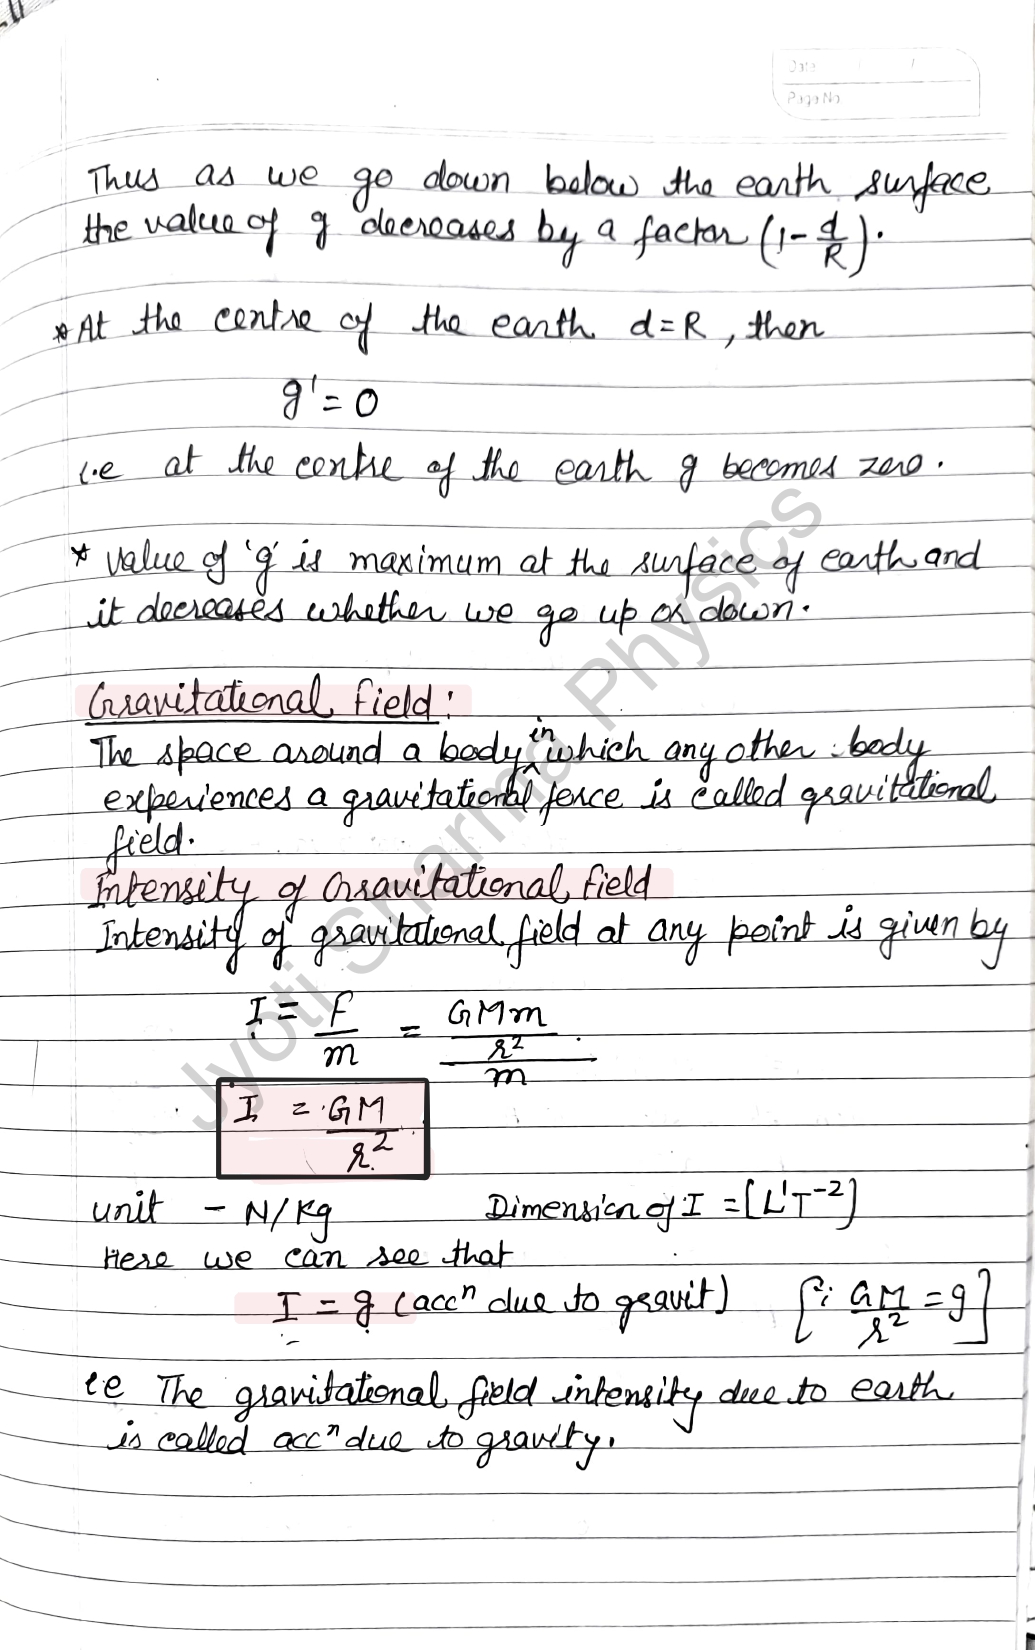 Date / /
Page No.
Thus as we go down below the earth surface
the value of g decreases by a factor (1 - d/R).
* At the centre of the earth d = R, then
g' = 0
i.e at the centre of the earth g becomes zero.
* value of 'g' is maximum at the surface of earth and
it decreases whether we go up or down.
Gravitational field:
The space around a body in which any other body
experiences a gravitational force is called gravitational
field.
Intensity of Gravitational field
Intensity of gravitational field at any point is given by
I = F/m = (GMm/r²)/m
I = GM/r²
unit - N/Kg Dimension of I = [L¹T⁻²]
Here we can see that
I = g (accⁿ due to gravit) [∵ GM/r² = g]
i.e The gravitational field intensity due to earth
is called accⁿ due to gravity.
Jyoti Sharma Physics